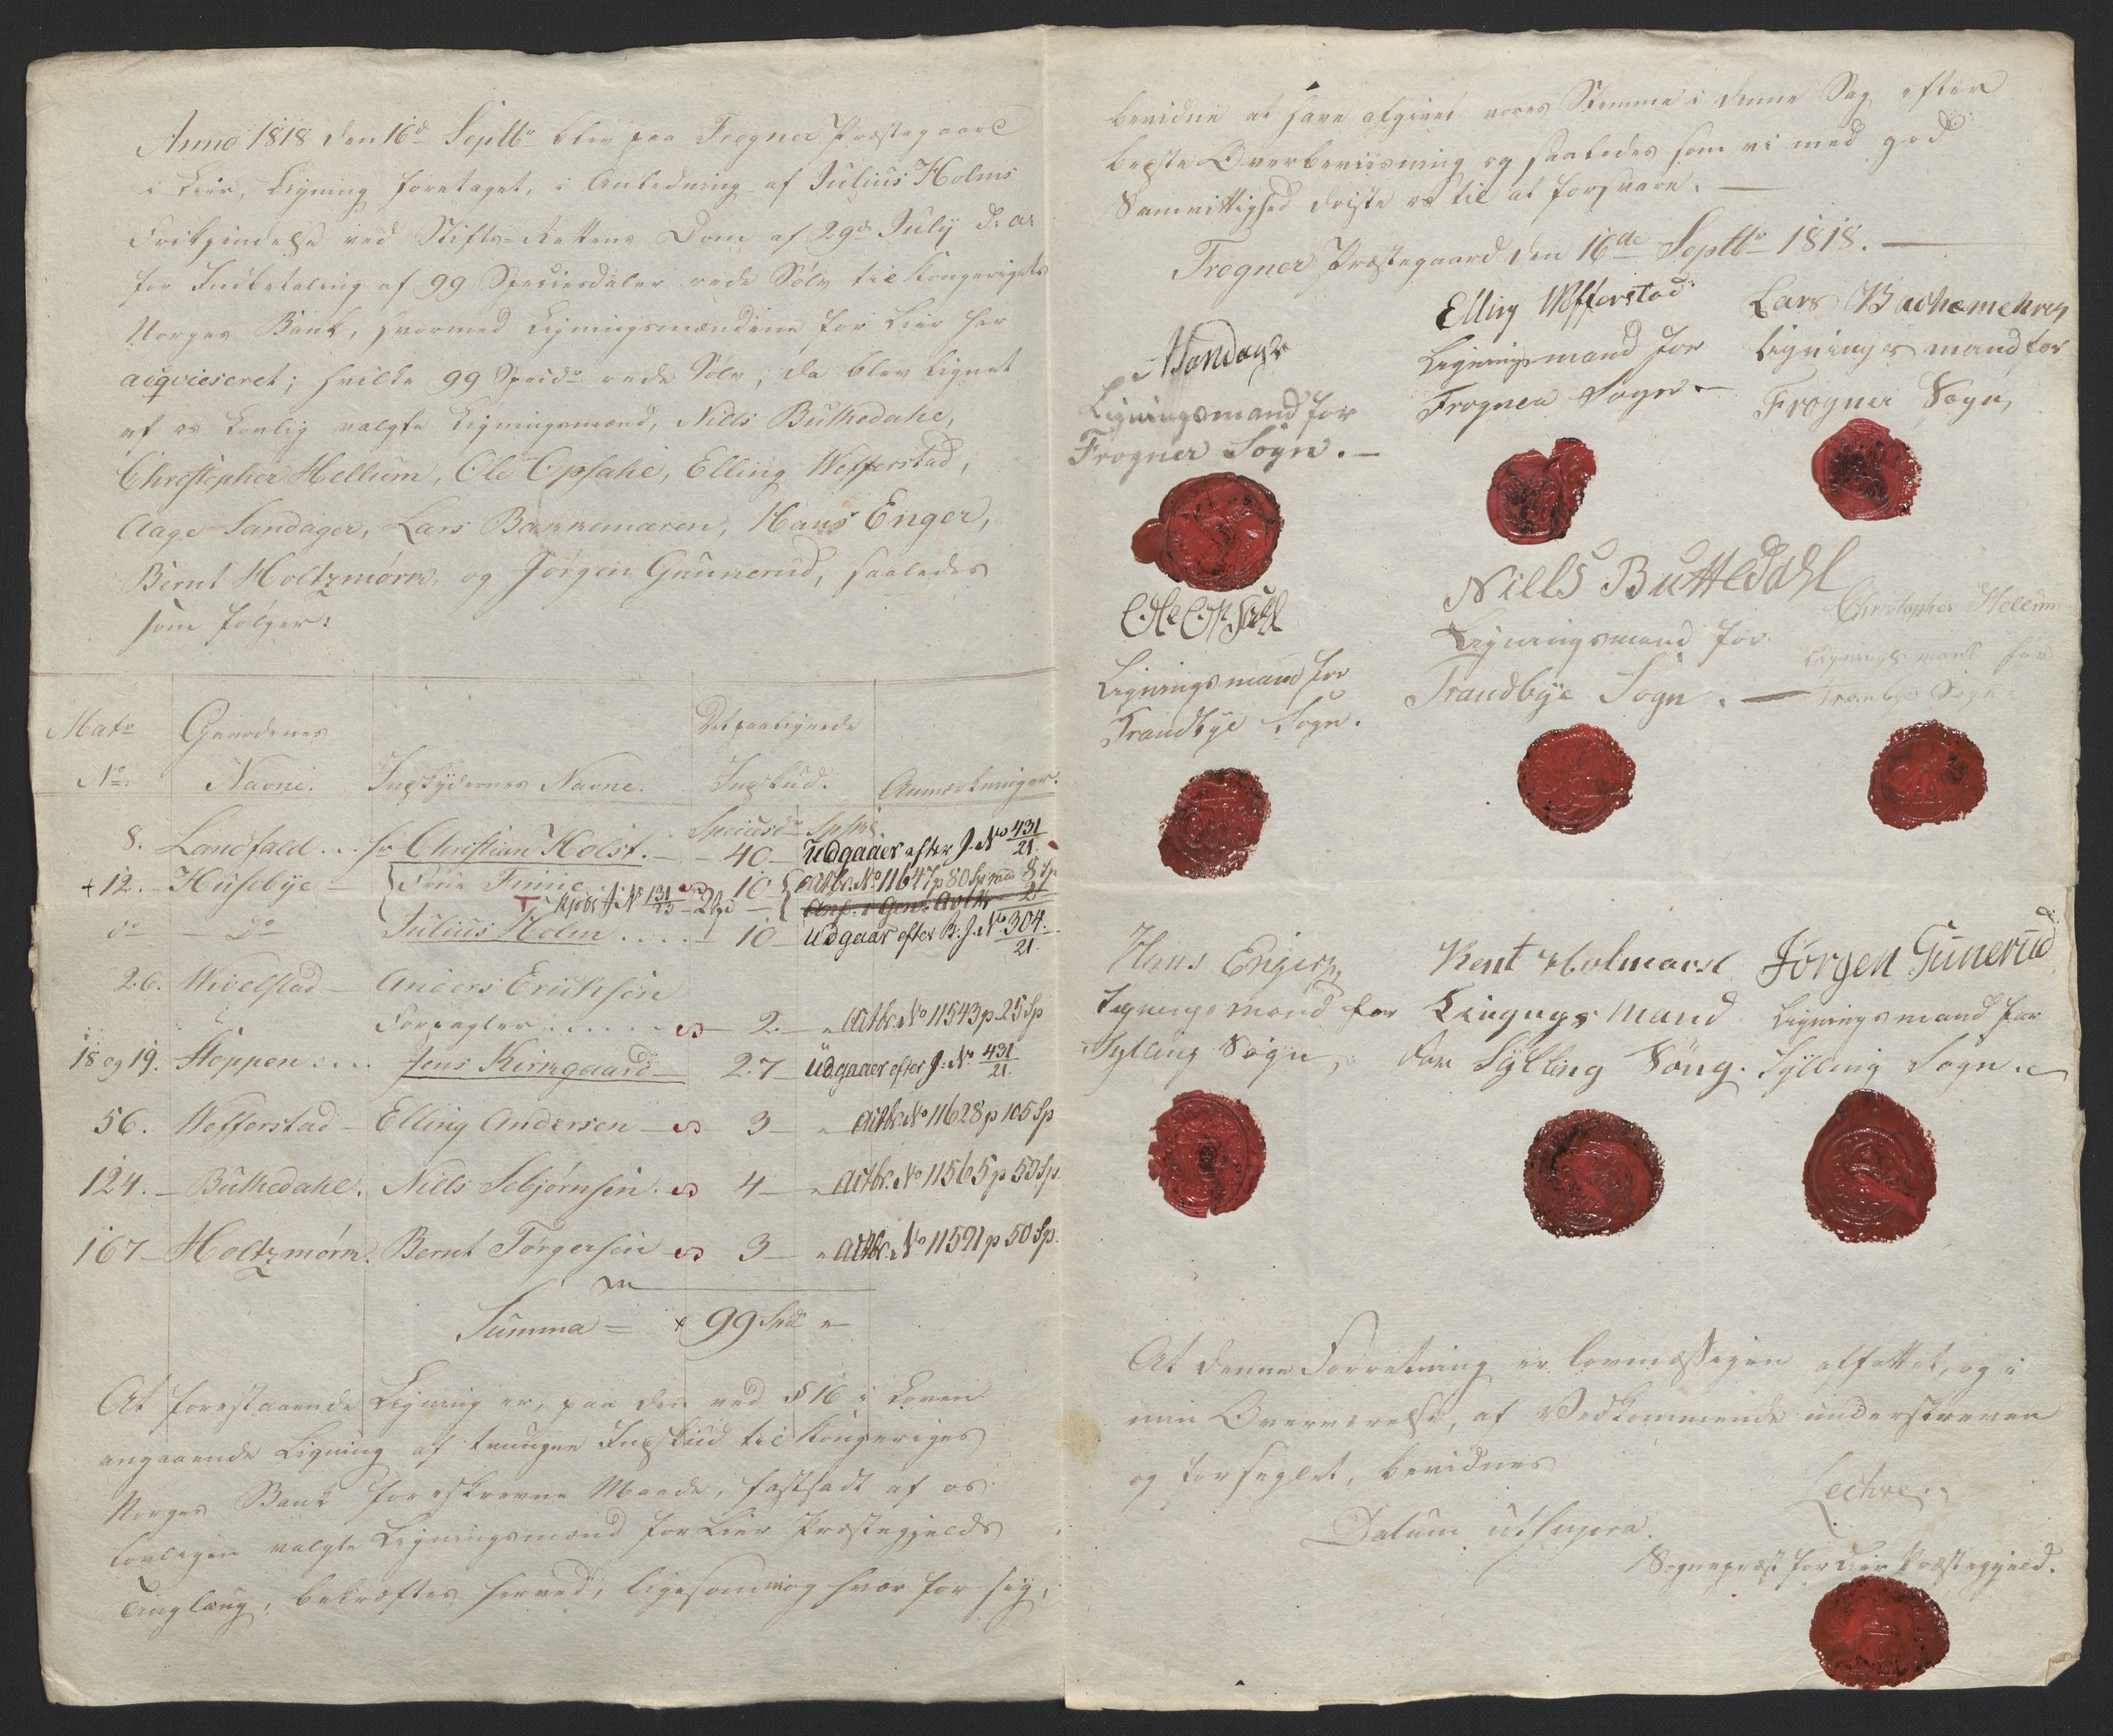 Anno 1818 den 16d Septbr blev paa Frogner Præstegaard
i Lier, Ligning foretaget, i Anledning af Julius Holms
Frikjendelse ved Stifts-Rettens Dom af 29de July d: a:
for Indbetaling af 99 Speciesdaler rede Sølv til Kongerigets
Norges Bank, hvormed Ligningsmændene for Lier har
acqvieseret; hvilke 99 Specidr rede Sølv, da blev lignet
af os lovlig valgte Ligningsmænd, Niels Bulkedahl,
Christopher Hellum, Ole Opsahl, Elling Wefferstad,
Aage Sandager, Lars Barkemaren, Hans Enger,
Bernt Holtzmørn, og Jørgen Gunnerud, saaledes
som følger:
Matr Gaardenes Det paalignede
No: Navne. Indskydernes Navne. Indskud. Anmærkninger.
Speciesdr Spskl.
8. Landfald... hr Christian Holst. - 40 - Udgaaer efter J. No 431/21.
+ 12. - Husebye - Frue Finne 10 Actbr. No 11647 p 80 Sp
Kjøbt A No 131/13 - 2
do - Do Julius Holm.... - 10 - Udgaar efter B. J. No. 304./21.
26. Wivelstad - Anders Erichsen
Forpagter...... 2. - Actbr. No 11543 p. 25 Sp
18 og 19. Stoppen.... Jens Kirkgaard - 27 - Udgaaer efter J. No. 431/21.
56. Wefferstad - Elling Andersen - 3 - Actbr. No 11628 p 105 Sp
124. - Bulkedahl. Niels Sebjørnsen. 4 - Actbr. No 11565 p 53 Sp.
167 - Holtzmørn. Bernt Torgersen 3 - Actbr. No 11591 p 50 Sp.
Summa = x 99 Spd
At forestaaende Ligning er, paa den ved § 16 i Loven
angaaende Ligning af tvungne Indskud til Kongeriges
Norges Bank foreskrevne Maade, fastsadt af os
lovligen valgte Ligningsmænd for Lier Præstegjelds
Tinglaug, bekræftes herved, ligesom vi og hver for sig,
bevidne at have afgivet vores Stemme i denne Sag efter
bedste Overbeviisning og saaledes som vi med god
Samvittighed driste os til at forsvare. -
Frogner Præstegaard den 16de Septbr 1818. -
Elling Wefferstad
Ligningsmand for
Frogner Sogn -
Lars
Ligninges mand for
Frogner Sogn,
Ligningsmand for
Frogner Sogn. -
Ligningsmand for
Trandbye Sogn.
Niells Butteldahl
Ligningsmand for
Trandbye Sogn. -
Christopher Hellum
Lignings mand for
Tranbye Sogn
Hans Enger
Lignings mand for
Sylling Sogn,
Bent Holmarsk
Lingngs Mand
for Sylling Song.
Jørgen Gunerud
Ligningsmand for
Sylling Sogn.
At denne Forretning er lovmæssigen affattet, og i
min Overværelse, af Vedkommende underskreven
og forseglet, bevidnes
Datum ut supra.
Lechve
Sognepræst for Lier Præstegjeld.